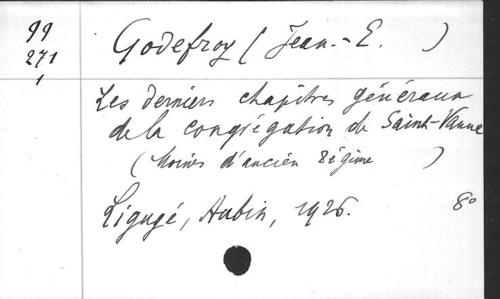 99
271
1
Godefroy (Jean.-E. )
Les derniers chapitres généraux
de la congrégation de Saint-Vanne
(Moines d'ancien Régime )
Ligugé, Aubin, 1926. 8°